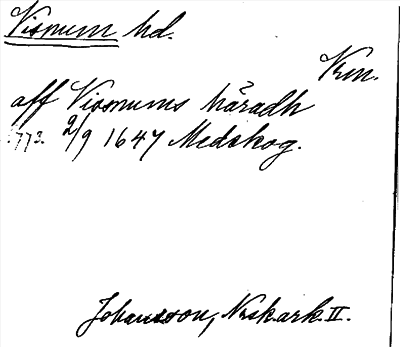 Visnum hd.
Vrm.
aff Visnums häradh
1773. 2/9 1647 Medskog.
Johansson, Nsk.ark. II.